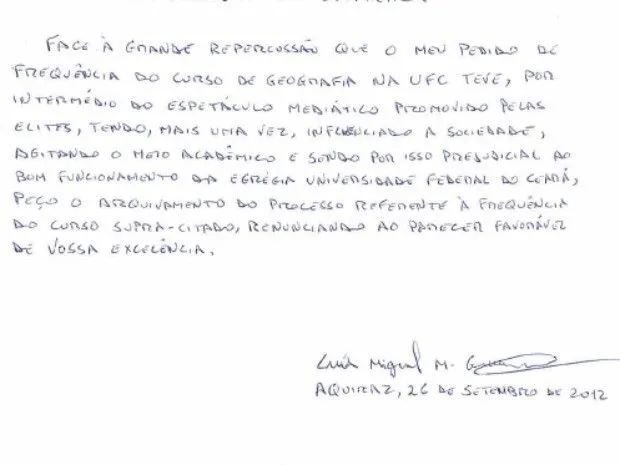 FACE À GRANDE REPERCUSSÃO QUE O MEU PEDIDO DE
FREQUÊNCIA DO CURSO DE GEOGRAFIA NA UFC TEVE, POR
INTERMÉDIO DO ESPETÁCULO MEDIÁTICO PROMOVIDO PELAS
ELITES, TENDO, MAIS UMA VEZ, INFLUENCIADO A SOCIEDADE,
AGITANDO O MEIO ACADÊMICO E SENDO POR ISSO PREJUDICIAL AO
BOM FUNCIONAMENTO DA EGRÉGIA UNIVERSIDADE FEDERAL DO CEARÁ,
PEÇO O ARQUIVAMENTO DO PROCESSO REFERENTE À FREQUÊNCIA
DO CURSO SUPRA-CITADO, RENUNCIANDO AO PARECER FAVORÁVEL
DE VOSSA EXCELÊNCIA.
Luis Miguel M.
AQUIRAZ, 26 DE SETEMBRO DE 2012